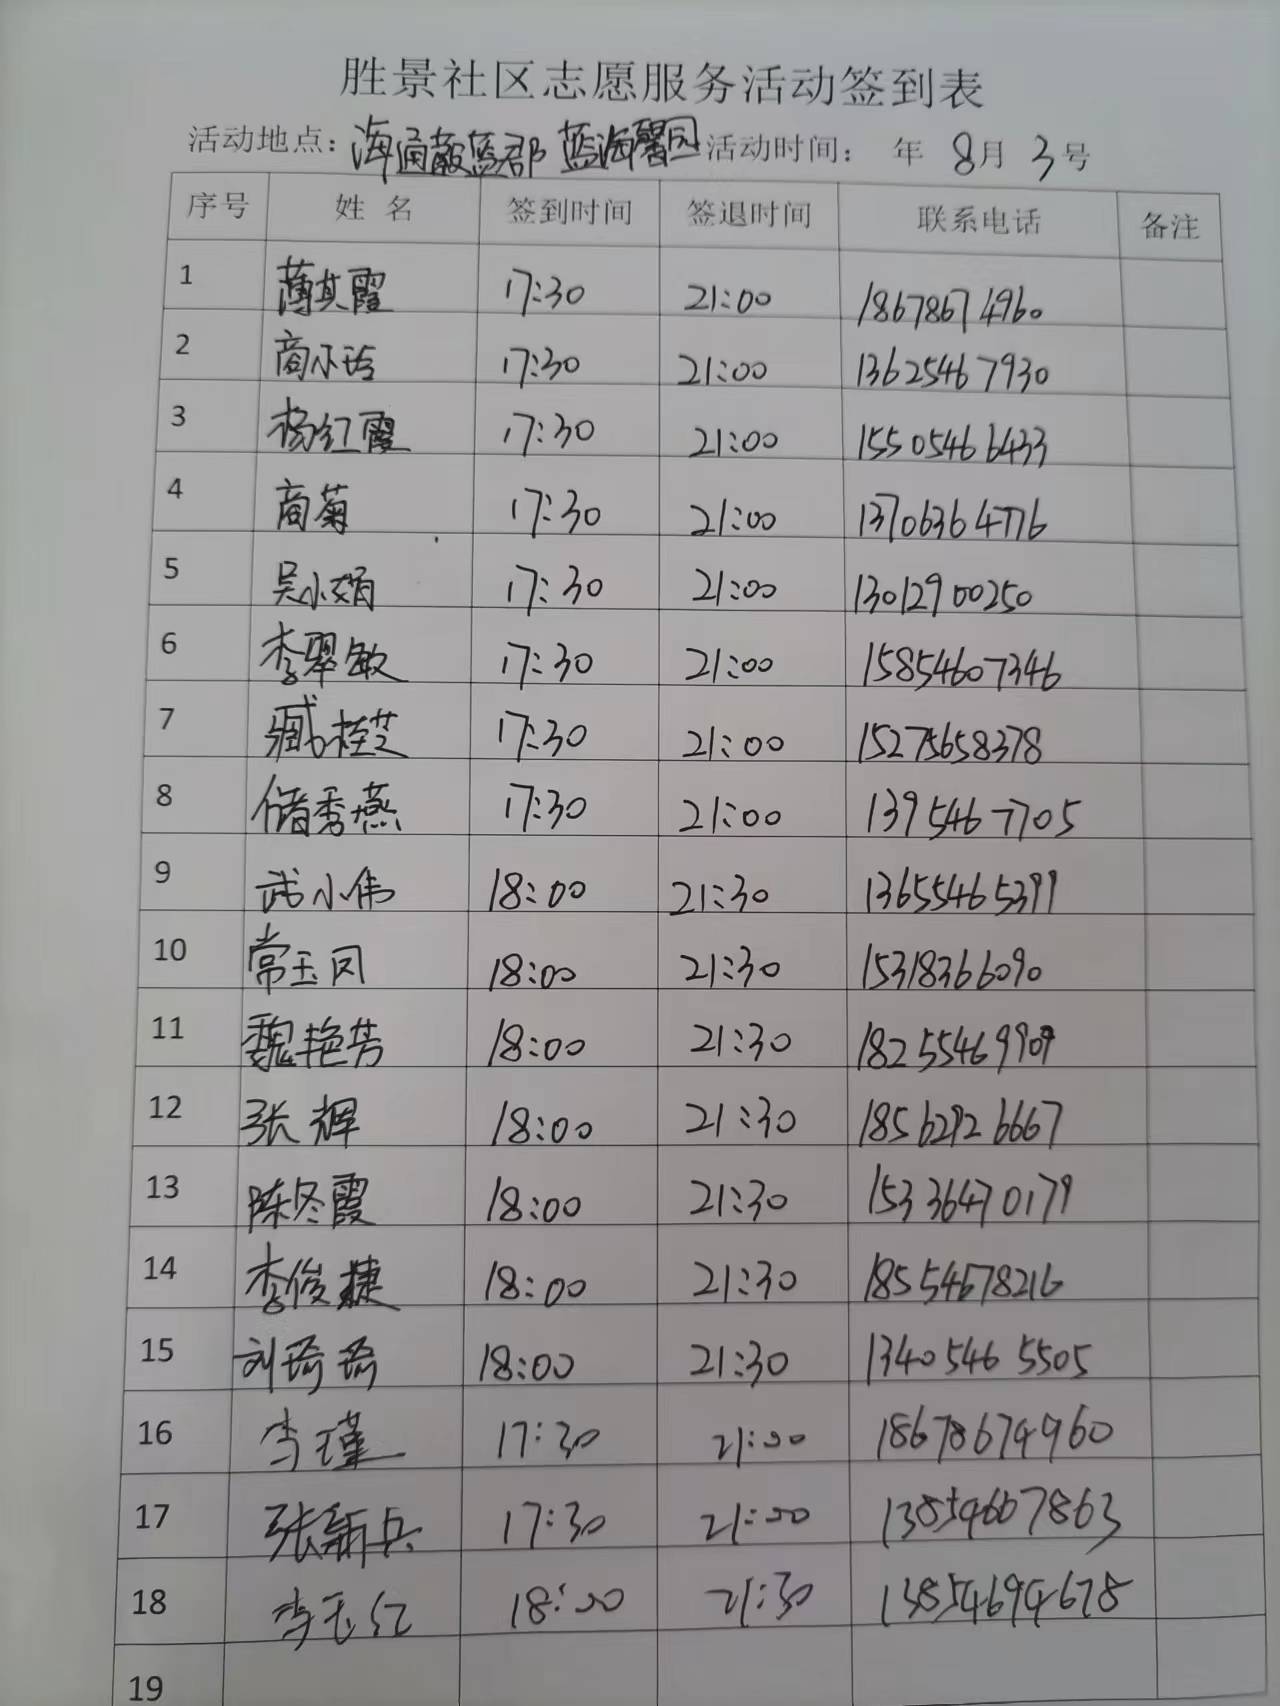 胜景社区志愿服务活动签到表
活动地点：海通 蓝郡 蓝海馨园 活动时间： 年 8月 3号
序号 姓 名 签到时间 签退时间 联系电话 备注
1 薄其霞 17:30 21:00 18678674960
2 商小玲 17:30 21:00 13625467930
3 杨红霞 17:30 21:00 15505466433
4 商菊 17:30 21:00 13706364776
5 吴小娟 17:30 21:00 13012900250
6 李翠敏 17:30 21:00 15854607346
7 臧桂芝 17:30 21:00 15275658378
8 储秀燕 17:30 21:00 13954677705
9 武小伟 18:00 21:30 13655465399
10 常玉凤 18:00 21:30 15318366090
11 魏艳芳 18:00 21:30 18255469909
12 张辉 18:00 21:30 18562926667
13 陈冬霞 18:00 21:30 15336470179
14 李俊捷 18:00 21:30 18554678216
15 刘琦琦 18:00 21:30 13405465505
16 李瑾 17:30 21:00 18678674960
17 张新兵 17:30 21:00 13854667863
18 李玉红 18:00 21:30 13854694678
19